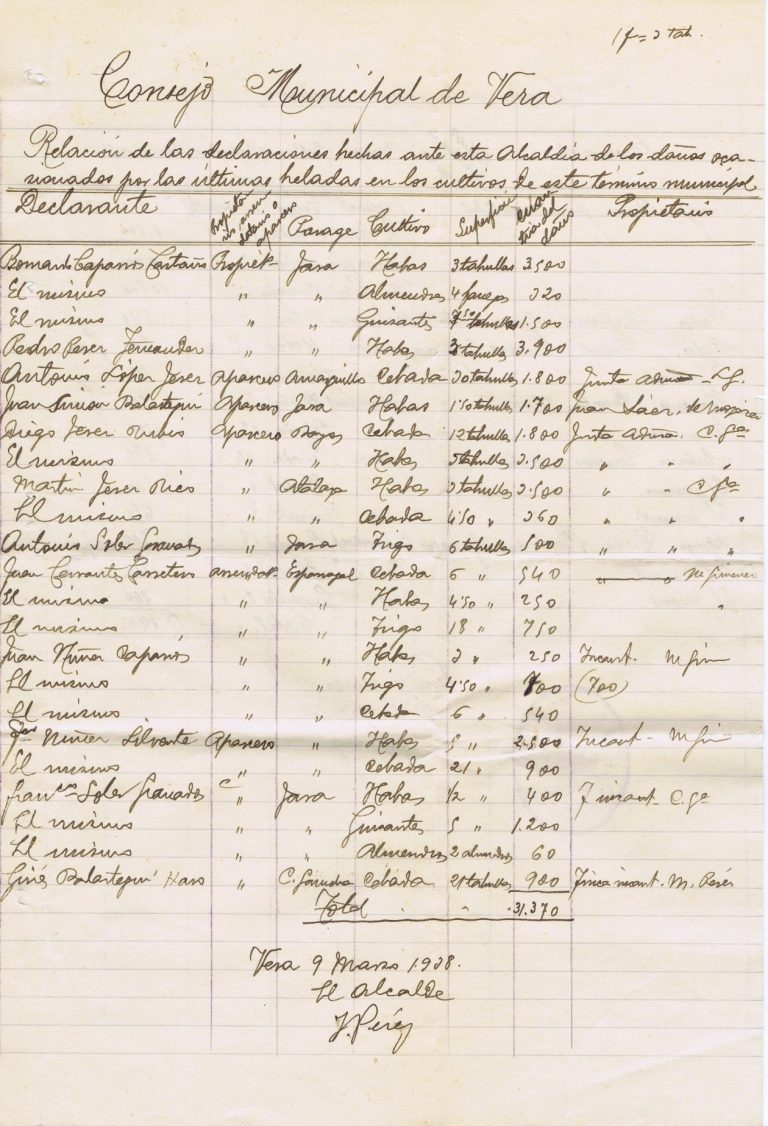 1 f = 2 tah.
Consejo Municipal de Vera
Relación de las declaraciones hechas ante esta Alcaldía de los daños oca-
sionados por las últimas heladas en los cultivos de este término municipal
Declarante Propietario arrendatario o aparcero Parage Cultivo Superficie Cuantía del daños Propietario
Caparrós Castaño Propiet. Jara Habas 3 tahullas 3.500
El mismo " " Almendros 4 320
El mismo " " Guisantes tahullas 1.500
Pedro Perez Fernandez " " Habas 3 tahullas 3.900
Antonio López Jerez Aparcero Cebada 30 tahullas 1.800 Junta
Juan Simón Balastegui Aparcero Jara Habas 1'50 tahulla 1.700 Juan
Diego Jerez Rubio Aparcero Cebada 12 tahullas 1.800 Junta C. Gª
El mismo " " Habas tahullas 2.500 " "
Martín Jerez " Habas 3 tahullas 2.500 " C. Gª
El mismo " " Cebada 4'50 " 360 " " "
Antonio Soler Granados " Jara Trigo 6 tahullas 500 " " "
Juan Cervantes Carretero arrendat. Cebada 6 " 540
El mismo " " Habas 4'50 " 250 "
El mismo " " Trigo 18 " 750
Juan Núñez Caparrós " " Habas 2 " 250 Incaut.
El mismo " " Trigo 4'50 " 700 (700)
El mismo " " Cebada 6 " 540
Núñez Silvente Aparcero " Habas 5 " 2.500 Incaut.
El mismo " " Cebada 21 " 900
Soler Granados " Jara Habas 1/2 " 400 F incaut. C. Gª
El mismo " " Guisantes 5 " 1.200
El mismo " " Almendros 2 almendros 60
Ginés Balastegui Haro " Cebada 21 tahullas 900 Finca incaut. M. Perez
Total 31.370
Vera 9 Marzo 1.938.
El Alcalde
J. Pérez